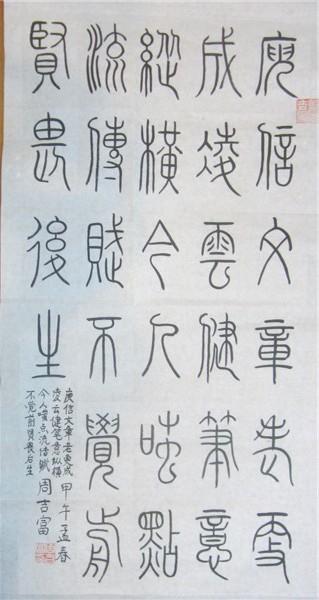 庾信文章老更
成凌雲健筆意
縱橫今人嗤點
流傳賦不覺前
賢畏後生
庾信文章老更成
凌云健笔意纵横
今人嗤点流传赋
不觉前贤畏后生
甲午孟春
周吉富